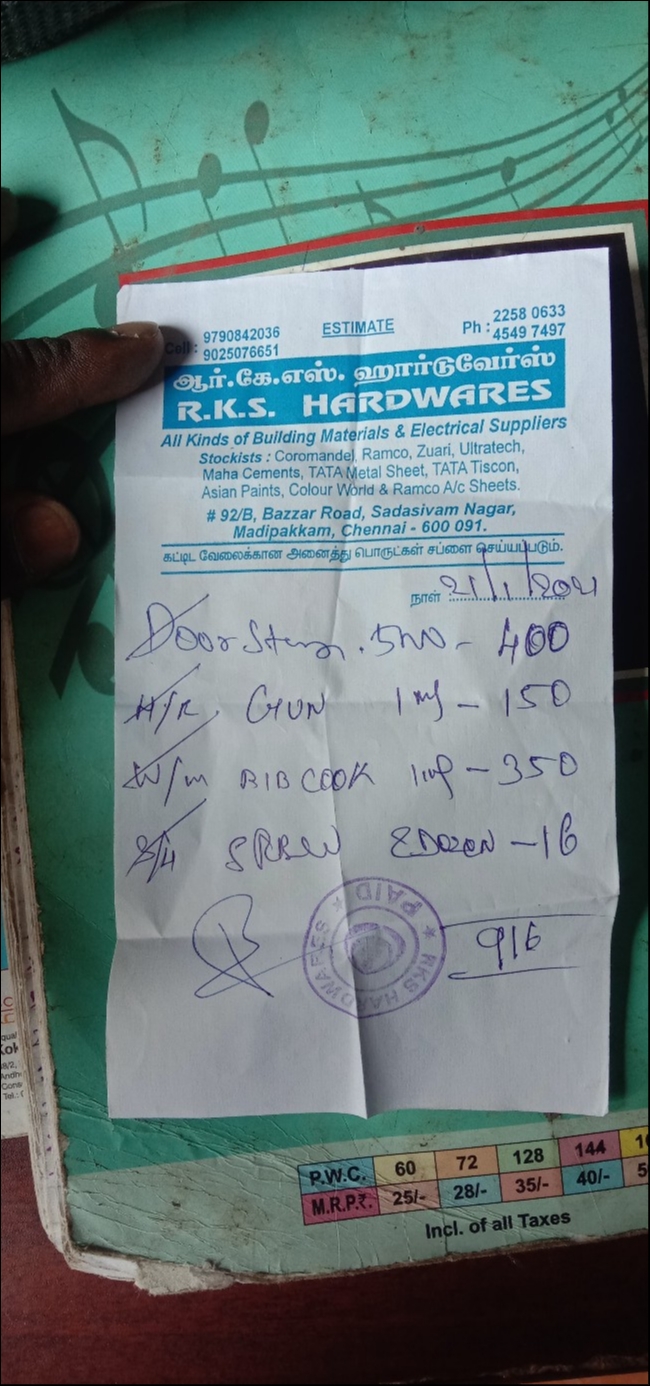 Cell : 9790842036
9025076651
ESTIMATE
Ph : 2258 0633
4549 7497
ஆர்.கே.எஸ். ஹார்டுவேர்ஸ்
R.K.S. HARDWARES
All Kinds of Building Materials & Electrical Suppliers
Stockists : Coromandel, Ramco, Zuari, Ultratech,
Maha Cements, TATA Metal Sheet, TATA Tiscon,
Asian Paints, Colour World & Ramco A/c Sheets.
# 92/B, Bazzar Road, Sadasivam Nagar,
Madipakkam, Chennai - 600 091.
கட்டிட வேலைக்கான அனைத்து பொருட்கள் சப்ளை செய்யப்படும்.
நாள் 21/1/2021
Door - 400
H/R. GUN 1 - 150
W/m BIB COOK - 350
3/4 DOZEN - 16
916
RKS HARDWARES ★ PAID ★
P.W.C. 60 72 128 144
M.R.P.₹. 25/- 28/- 35/- 40/-
Incl. of all Taxes